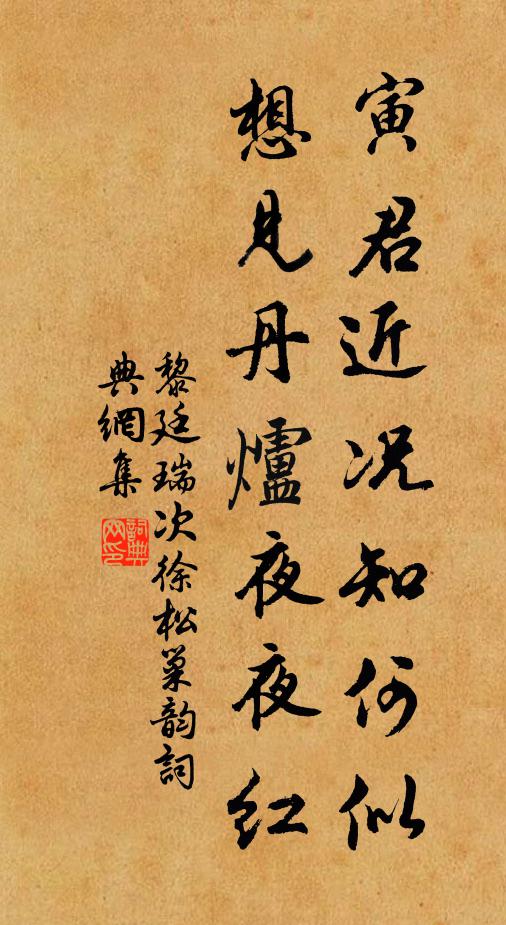 寅君近況知何似
想見丹爐夜夜紅
黎廷瑞次徐松巢韵詞
典網集
詞典网印